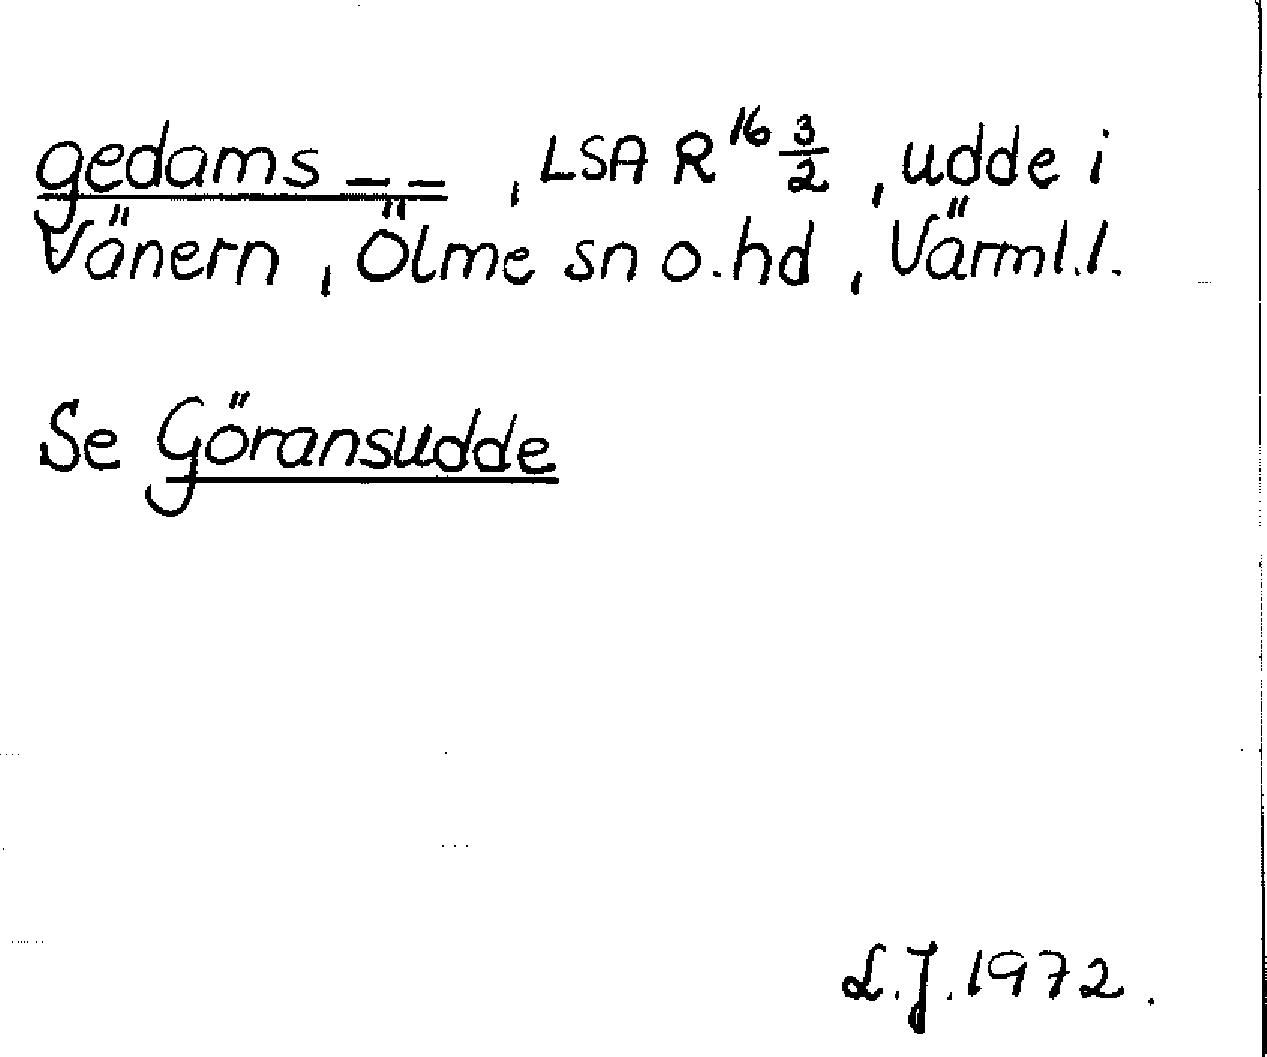 gedams _ _ , LSA R 16 3/2 , udde i
Vänern , Ölme sn o. hd , Värml. l.
Se Göransudde
L. J. 1972 .